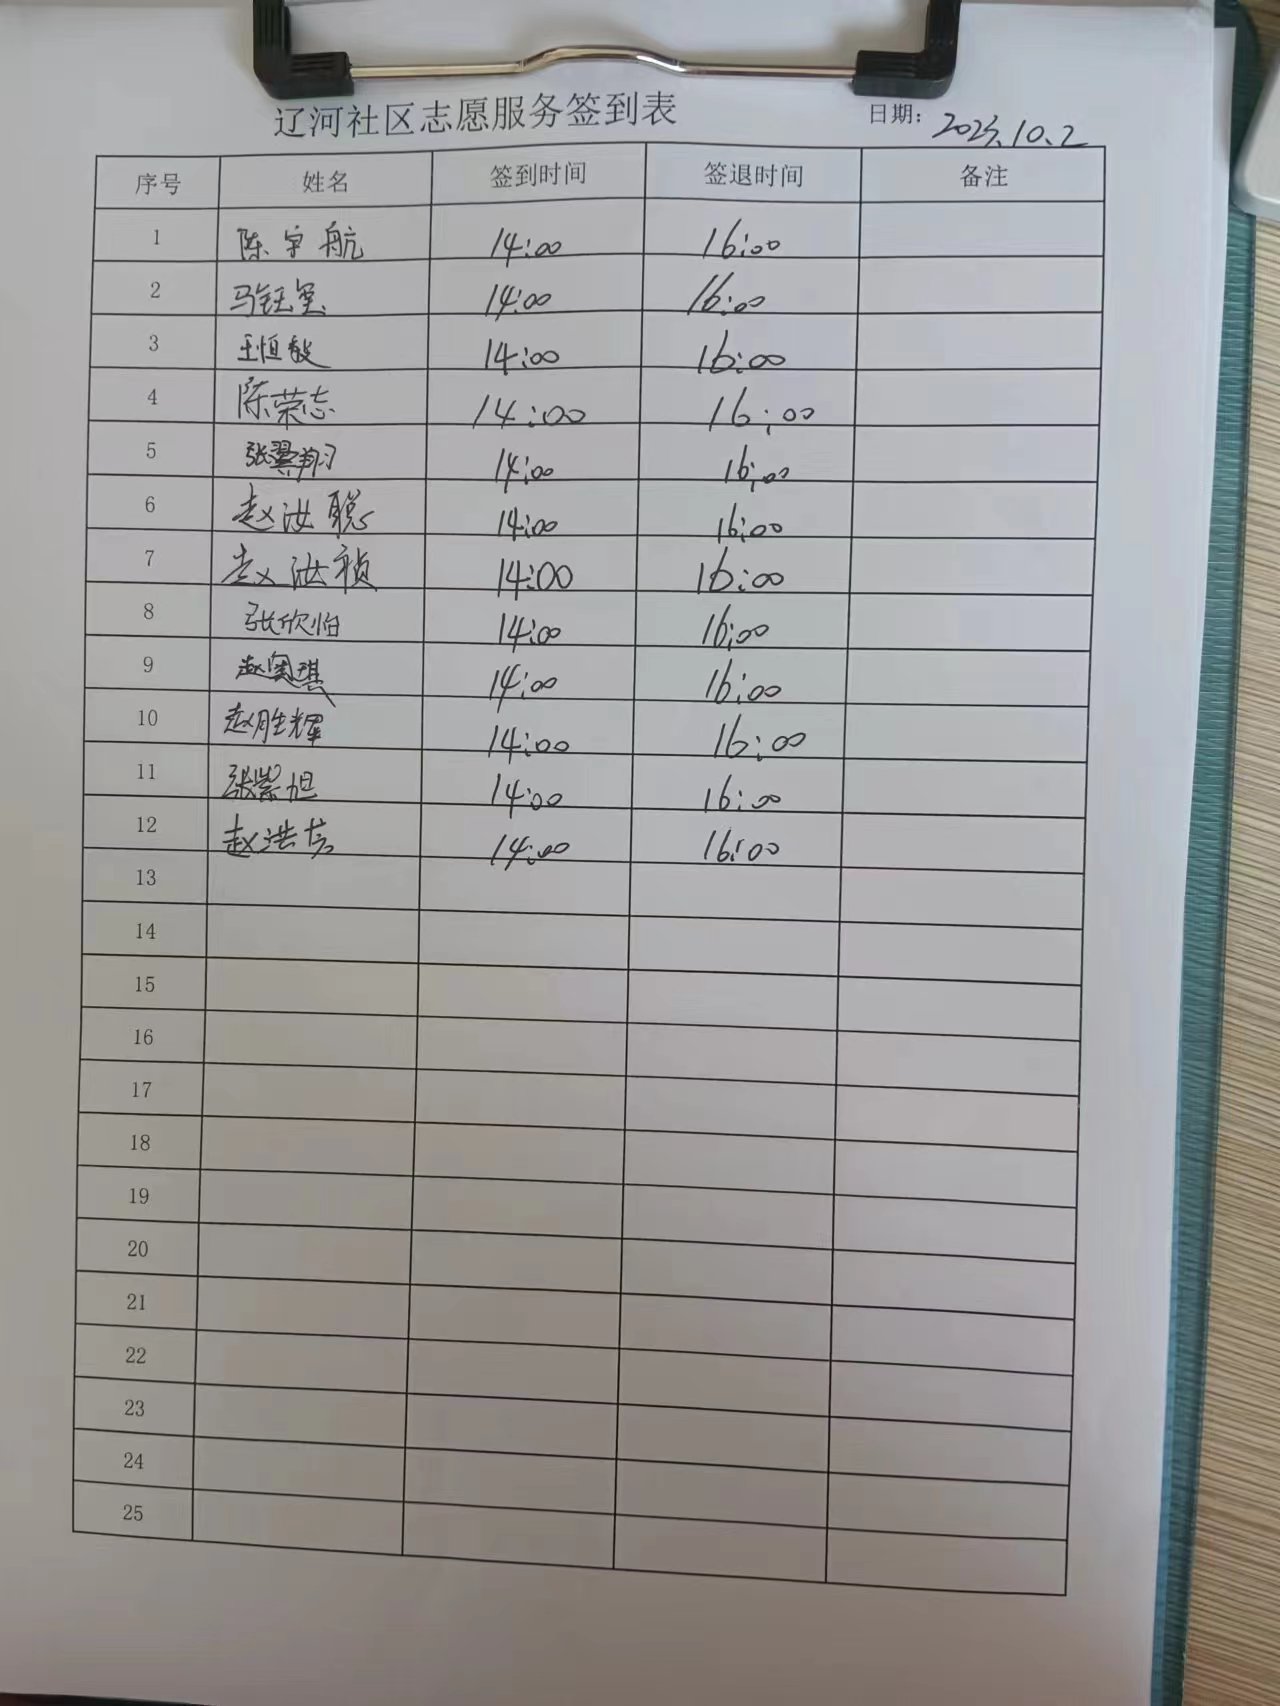 辽河社区志愿服务签到表 日期: 2023.10.2
序号 姓名 签到时间 签退时间 备注
1 陈宇航 14:00 16:00
2 马钰玺 14:00 16:00
3 王恒毅 14:00 16:00
4 陈荣志 14:00 16:00
5 张翼翔 14:00 16:00
6 赵汝聪 14:00 16:00
7 赵汝祯 14:00 16:00
8 张欣怡 14:00 16:00
9 赵奥琪 14:00 16:00
10 赵胜辉 14:00 16:00
11 张紫旭 14:00 16:00
12 赵浩 14:00 16:00
13
14
15
16
17
18
19
20
21
22
23
24
25